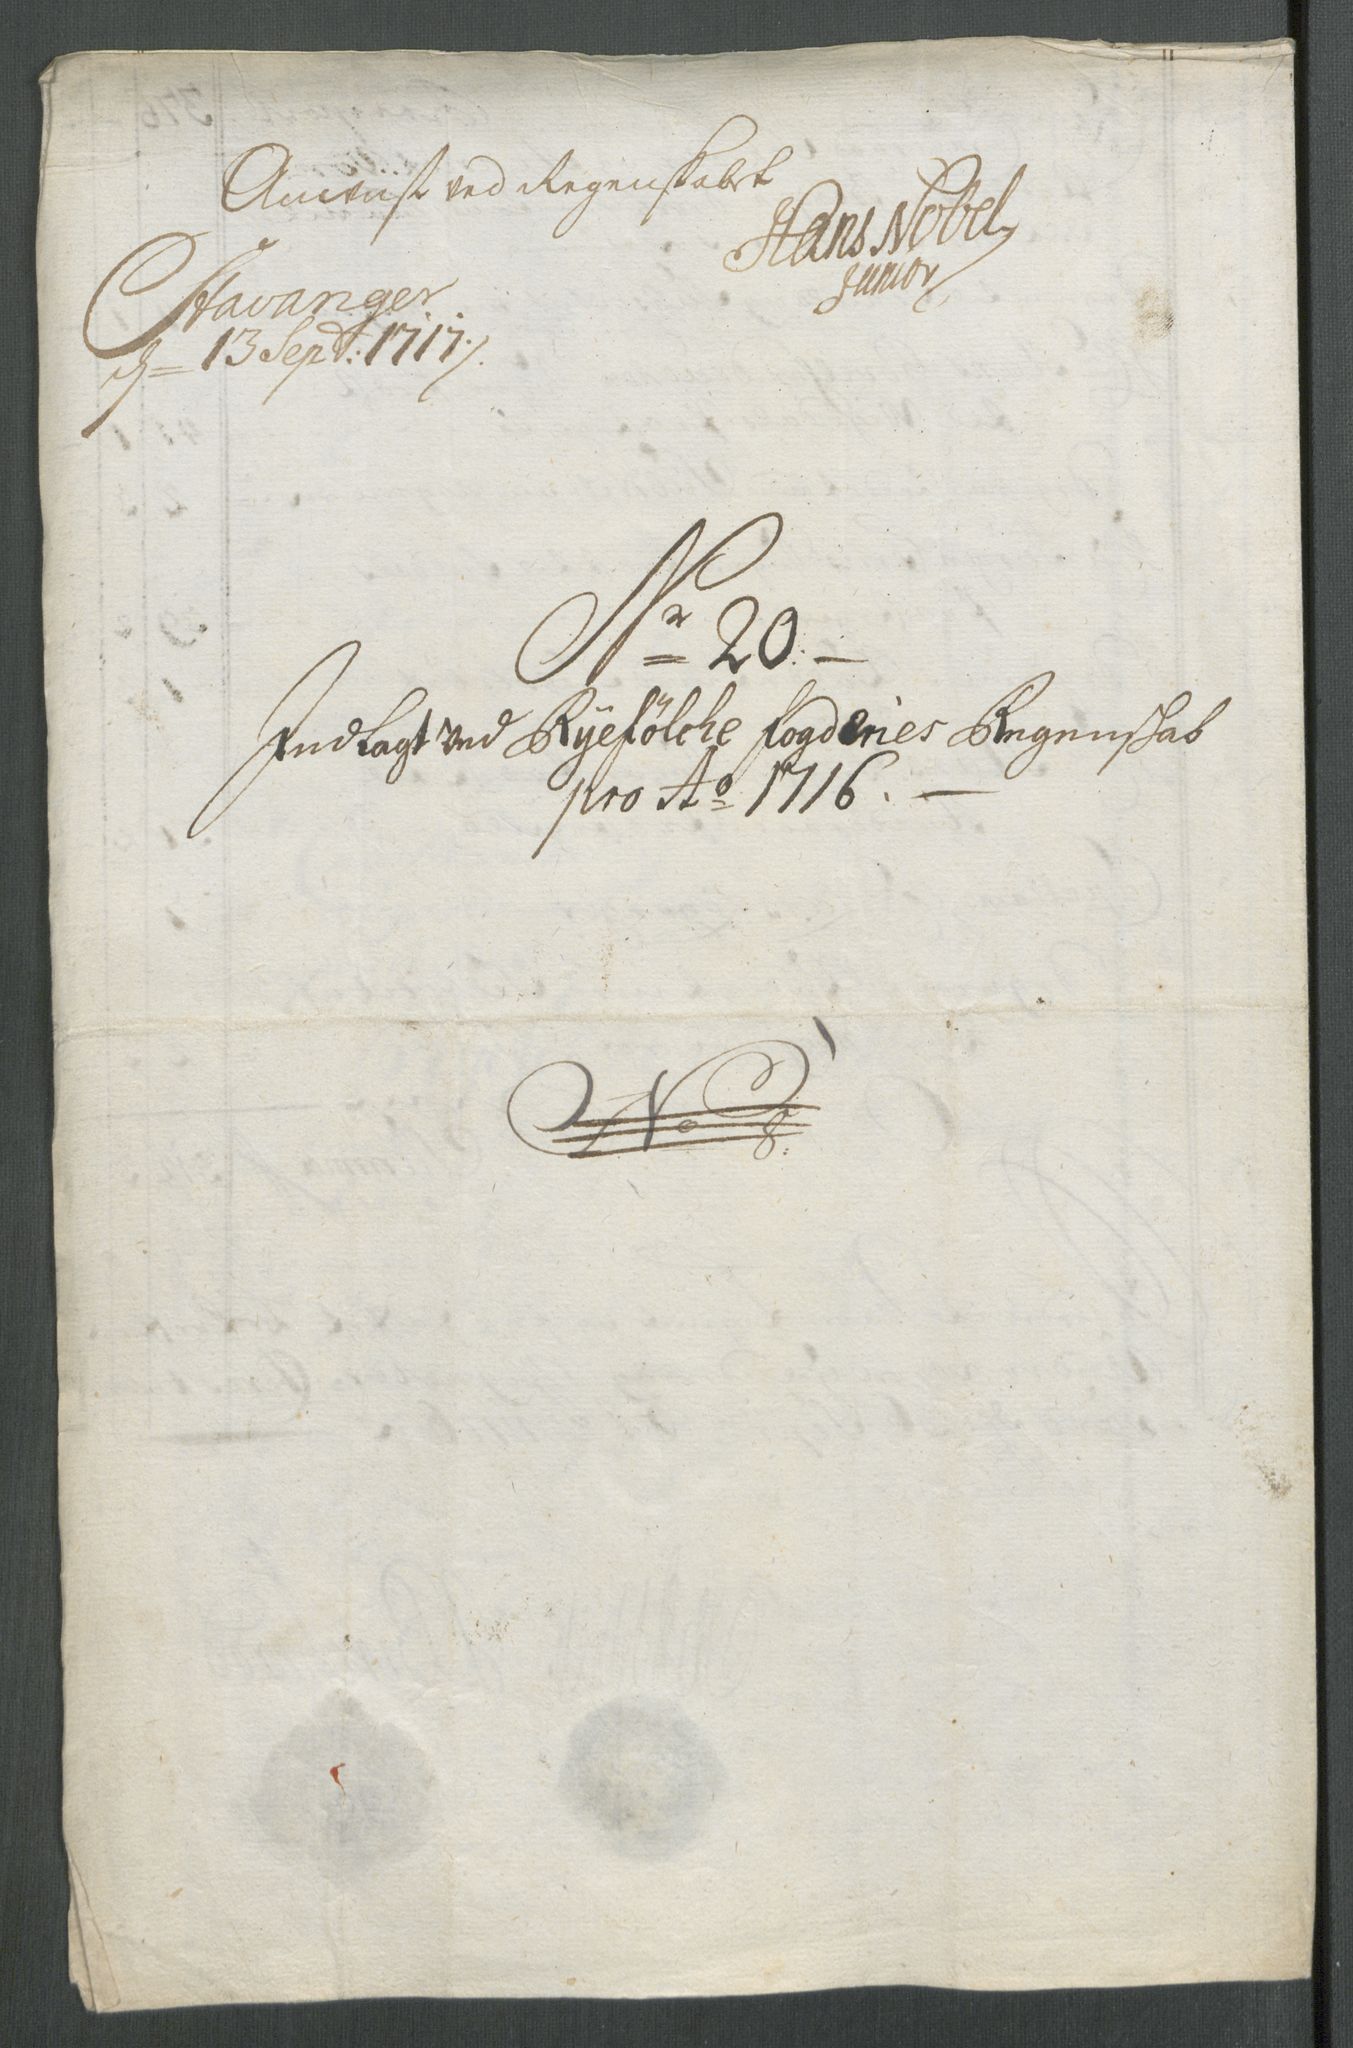 Anvist ved Regenskabet
Hans Nobel
Junior
Stavanger
d. 13 Sept: 1717.
Nr 20. —
Indlagt ved Ryefölche fogderies Regenskab
pro Ao 1716. —
No 8.